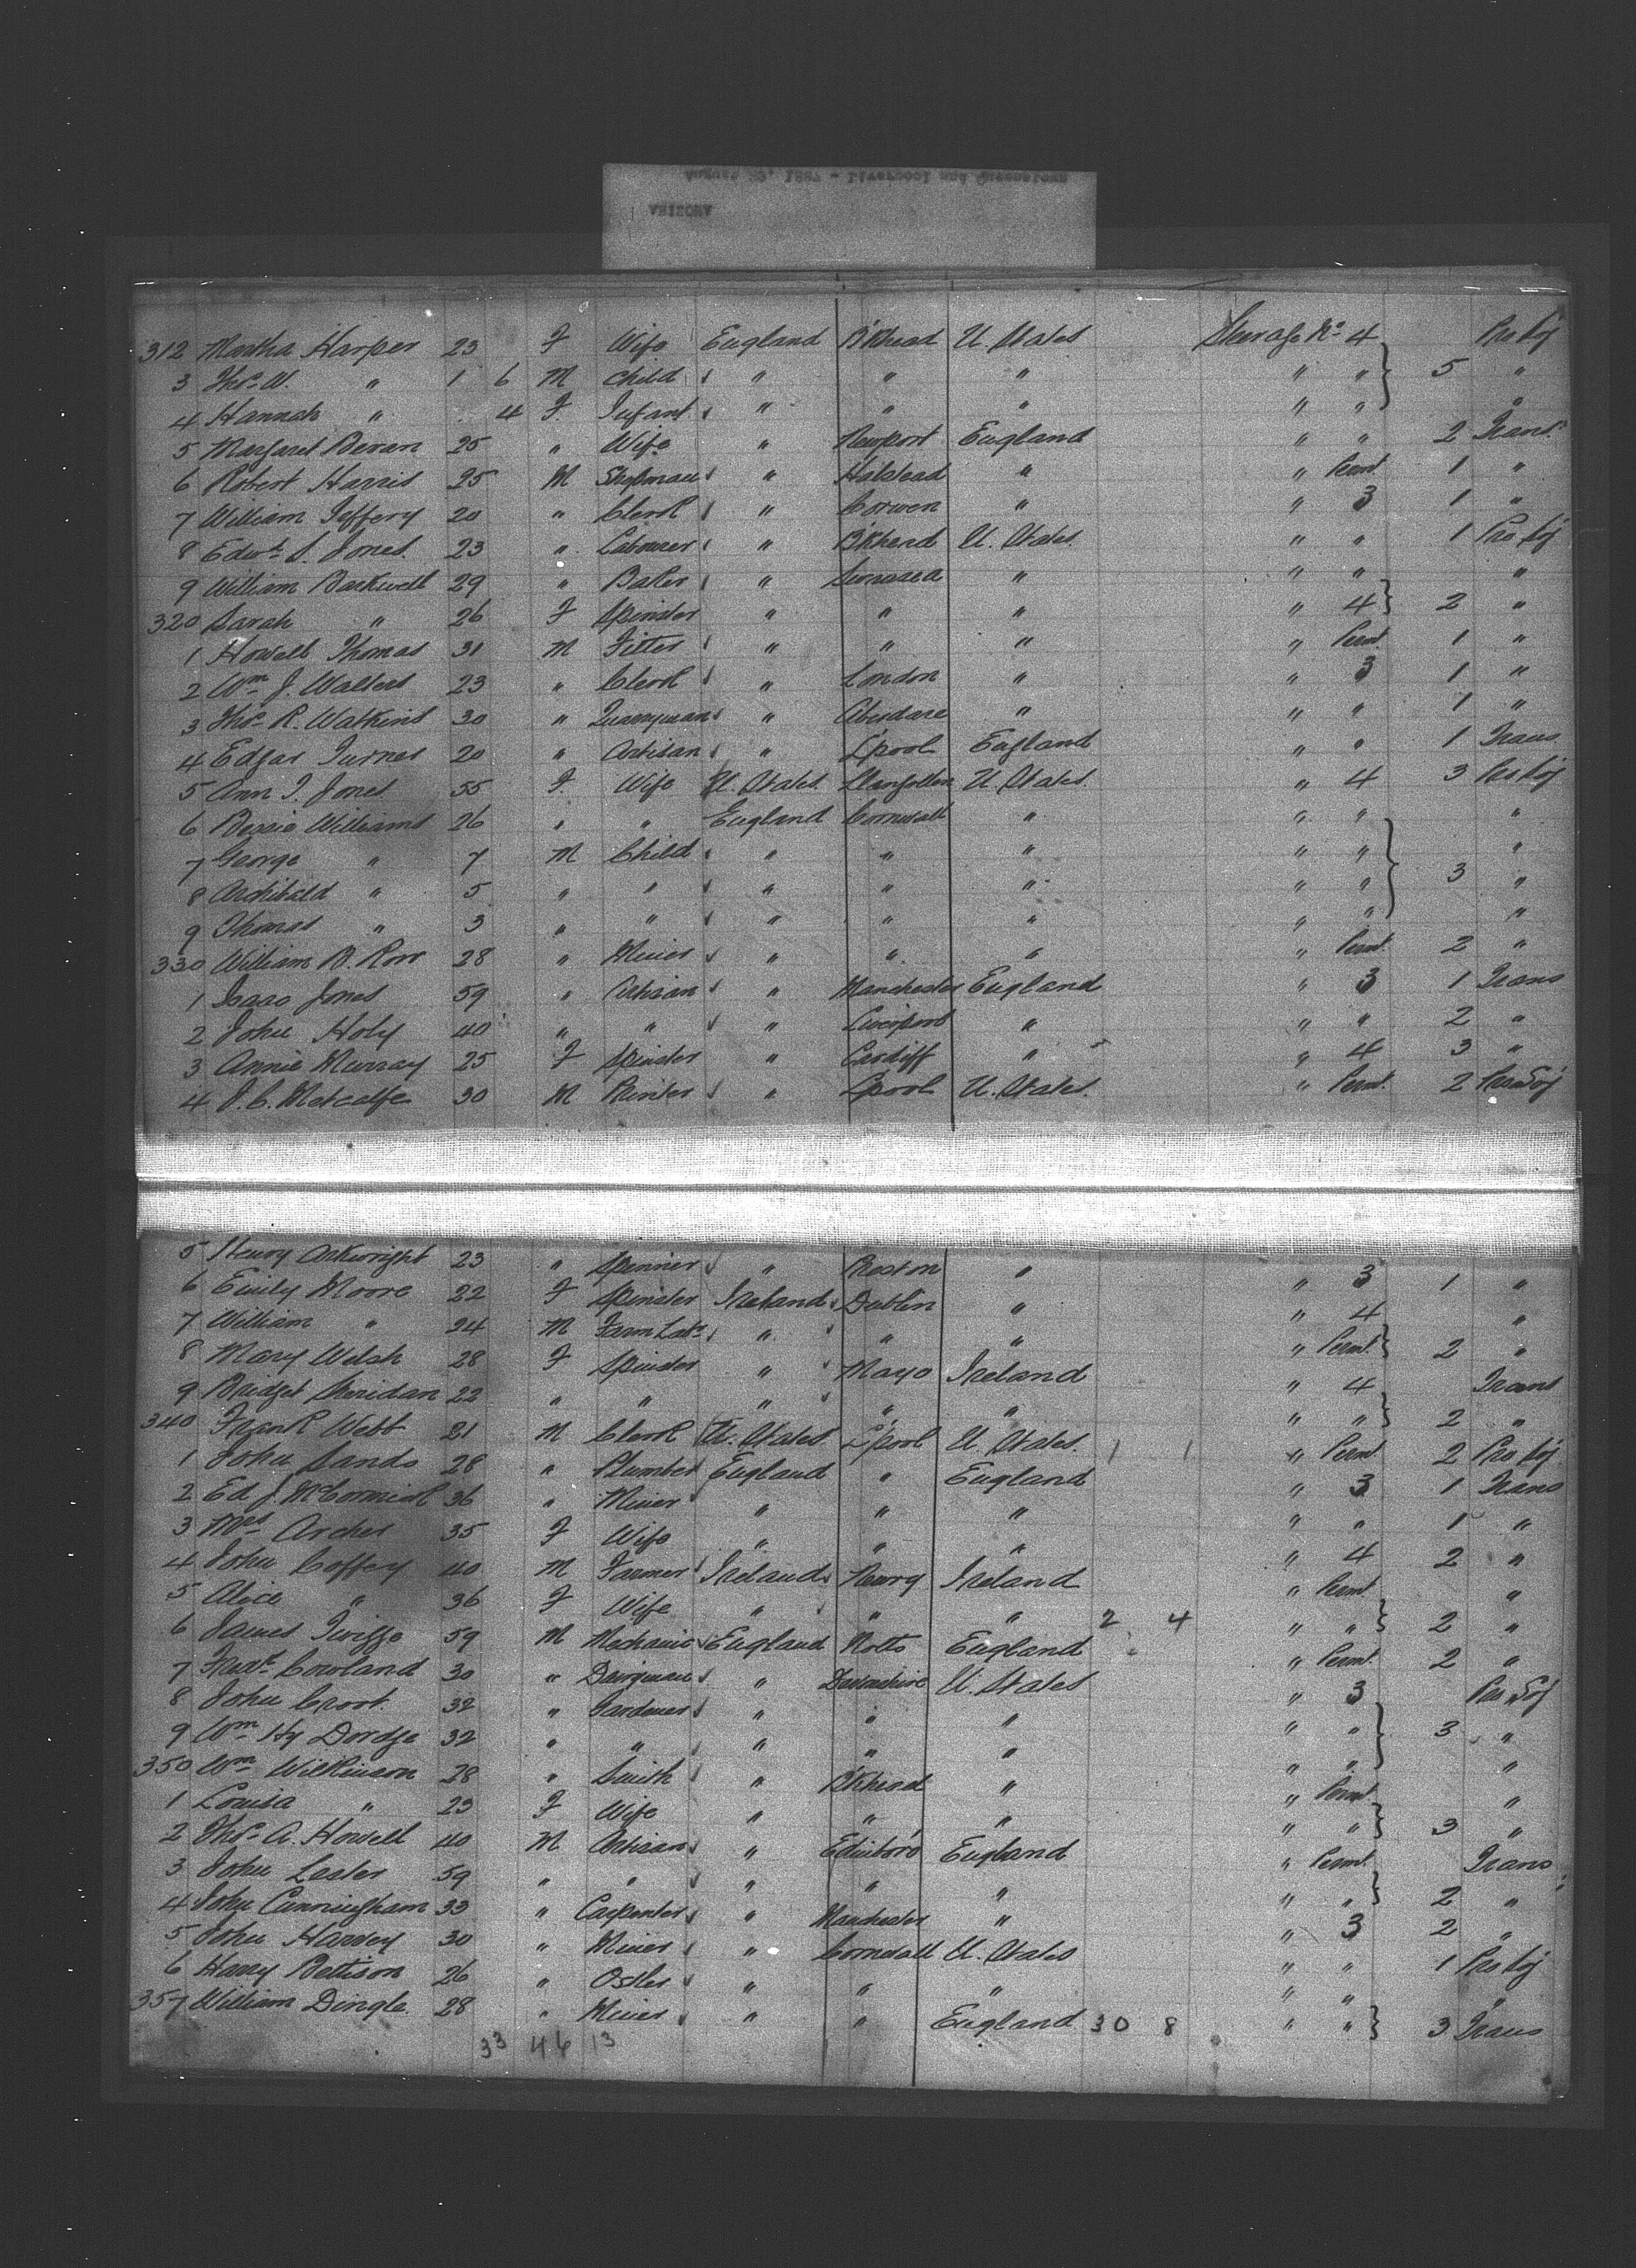 August 29, 1887 - Liverpool and Queenstown
ARIZONA
312 Martha Harper 23 F Wife England B'Khead U. States Steerage No 4 Pro Soj
3 Thos. W. " 1 6 M Child " " " " " 5 "
4 Hannah " 4 F Infant " " " " " "
5 Margaret Bevan 25 " Wife " Newport England " " 2 Trans.
6 Robert Harris 25 M Shopman " Halstead " " Permt. 1 "
7 William Jeffery 20 " Clerk " Corwen " " 3 1 "
8 Edwd. S. Jones 23 " Labourer " B'Khead U. States " " 1 Pro Soj
9 William Barkwell 29 " Baker " Swansea " " " "
320 Sarah " 26 F Spinster " " " " 4 2 "
1 Howell Thomas 31 M Fitter " " " " Permt. 1 "
2 Wm J. Walters 23 " Clerk " London " " 3 1 "
3 Thos. R. Watkins 30 " Quarryman " Aberdare " " " 1 "
4 Edgar Turner 20 " Artisan " L'pool England " " 1 Trans
5 Ann I. Jones 55 F Wife U. States Llangollen U. States " 4 3 Pro Soj
6 Bessie Williams 26 " " England Cornwall " " " "
7 George " 7 M Child " " " " " "
8 Archibald " 5 " " " " " " " 3 "
9 Thomas " 3 " " " " " " " "
330 William B. Row 28 " Miner " " " " Permt. 2 "
1 Isaac Jones 59 " Artisan " Manchester England " 3 1 Trans
2 John Holy 40 " " " Liverpool " " " 2 "
3 Annie Murray 25 F Spinster " Cardiff " " 4 3 "
4 J. C. Metcalfe 30 M Printer " L'pool U. States " Permt. 2 Pro Soj
5 Henry Arkwright 23 " Spinner " Preston " " 3 1 "
6 Emily Moore 22 F Spinster Ireland Dublin " " 4 "
7 William " 24 M Farm Labr " " " " Permt. 2 "
8 Mary Welsh 28 F Spinster " Mayo Ireland " 4 Trans
9 Bridget Sheridan 22 " " " " " " " 2 "
340 Frank Webb 21 M Clerk U. States L'pool U. States 1 1 " Permt. 2 Pro Soj
1 John Sands 28 " Plumber England " England " 3 1 Trans
2 Ed J. McCormick 36 " Miner " " " " " 1 "
3 Mrs Archer 35 F Wife " " " " 4 2 "
4 John Coffey 40 M Farmer Ireland Newry Ireland " Permt. "
5 Alice " 36 F Wife " " " 2 4 " " 2 "
6 James Twigge 59 M Mechanic England Notts England " Permt. 2 "
7 Fredk. Cowland 30 " Dairyman " Devonshire U. States " 3 Pro Soj
8 John Croot 32 " Gardener " " " " " 3 "
9 Wm Hy Dordge 32 " " " " " " " "
350 Wm Wilkinson 28 " Smith " B'Khead " " Permt. "
1 Louisa " 23 F Wife " " " " " 3 "
2 Thos. A. Howell 40 M Artisan " Edinboro England " Permt. Trans
3 John Lester 59 " " " " " " " 2 "
4 John Cunningham 33 " Carpenter " Manchester " " 3 2 "
5 John Harvey 30 " Miner " Cornwall U. States " " 1 Pro Soj
6 Harry Bettison 26 " Ostler " " " " " "
357 William Dingle 28 " Miner " " England 30 8 " " 3 Trans
33 46 13